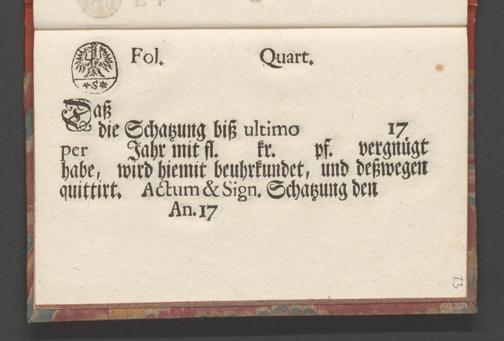 Fol. Quart.
*S*
Daß
die Schatzung biß ultimo 17
per Jahr mit fl. kr. pf. vergnügt
habe, wird hiemit beuhrkundet, und deßwegen
quittirt. Actum & Sign. Schatzung den
An. 17
23